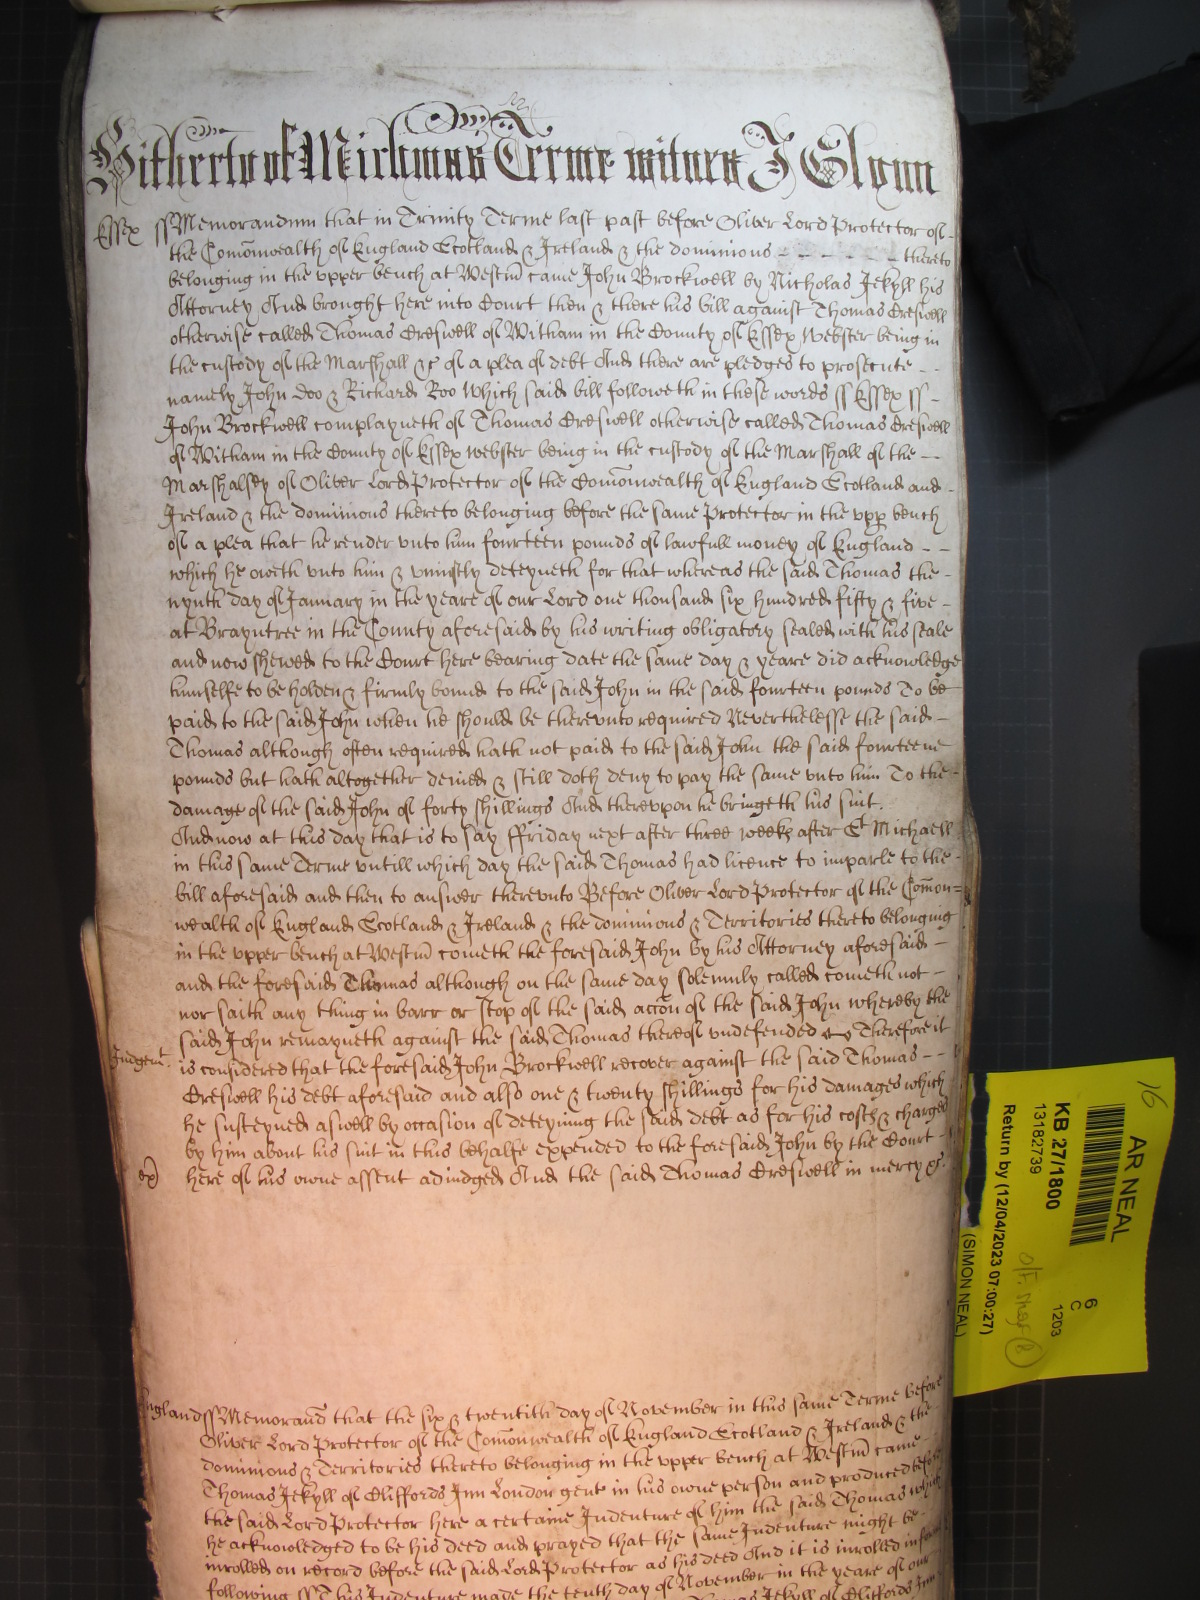 Hitherto of Michmas Terme witnes J Glynn
Essex ss Memorandum that in Trinity Terme last past before Oliver Lord Protector of -
the Com̄onwealth of England Scotland & Ireland & the dominions - - - - - - thereto
belonging in the upper bench at Westm̄ came John Brockwell by Nicholas Jekyll his
Attorney And brought here into Court then & there his bill against Thomas Creswell
otherwise called Thomas Creswell of Witham in the County of Essex Webster being in
the custody of the Marshall &c of a plea of debt And there are pledges to prosecute - -
namely John Doo & Richard Roo Which said bill followeth in these words ss Essex ss -
John Brockwell complayneth of Thomas Creswell otherwise called Thomas Creswell
of Witham in the County of Essex webster being in the custody of the Marshall of the - -
Marshalsey of Oliver Lord Protector of the Com̄onwealth of England Scotland and -
Ireland & the dominions thereto belonging before the same Protector in the upp bench
of a plea that he render unto him fourteen pounds of lawfull money of England - -
which he oweth unto him & uniustly deteyneth for that whereas the said Thomas the -
nynth day of January in the yeare of our Lord one thousand six hundred fifty & five -
at Brayntree in the County aforesaid by his writing obligatory sealed with his seale
and now shewed to the Court here bearing date the same day & yeare did acknowledge
himselfe to be holden & firmly bound to the said John in the said fourteen pounds To be
paid to the said John when he should be thereunto required Neverthelesse the said -
Thomas although often required hath not paid to the said John the said fourteene
pounds but hath altogether denied & still doth deny to pay the same unto him To the -
damage of the said John of forty shillings And thereupon he bringeth his suit.
And now at this day that is to say ffriday next after three weekes after St Michaell
in this same Terme untill which day the said Thomas had licence to imparle to the -
bill aforesaid and then to answer thereunto Before Oliver Lord Protector of the Com̄on=
wealth of England Scotland & Ireland & the dominions & Territories thereto belonging
in the upper bench at Westm̄ cometh the foresaid John by his Attorney aforesaid -
and the foresaid Thomas although on the same day solemnly called cometh not -
nor saith any thing in barr or stop of the said acc̄on of the said John whereby the
said John remayneth against the said Thomas thereof undefended Therefore it
Judgemt is considered that the foresaid John Brockwell recover against the said Thomas - -
Creswell his debt aforesaid and also one & twenty shillings for his damages which
he susteyned aswell by occasion of deteyning the said debt as for his costs & charges
by him about his suit in this behalfe expended to the foresaid John by the Court -
here of his owne assent adiudged And the said Thomas Creswell in mercy &c.
England ss Memorand̄ that the six & twentith day of November in this same Terme before
Oliver Lord Protector of the Com̄onwealth of England Scotland & Ireland & the
dominions & Territories thereto belonging in the upper bench at Westm̄ came
Thomas Jekyll of Cliffords Inn London gent in his owne person and produced before
the said Lord Protector here a certaine Indenture of him the said Thomas which
he acknowledged to be his deed and prayed that the same Indenture might be
inrolled on record before the said Lord Protector as his deed And it is inrolled in
following ss This Indenture made the tenth day of November in the yeare of our
Thomas Jekyll of Cliffords Inn
16
AR NEAL
KB 27/1800
13182739
Return by (12/04/2023 07:00:27)
(SIMON NEAL)
6
C
1203